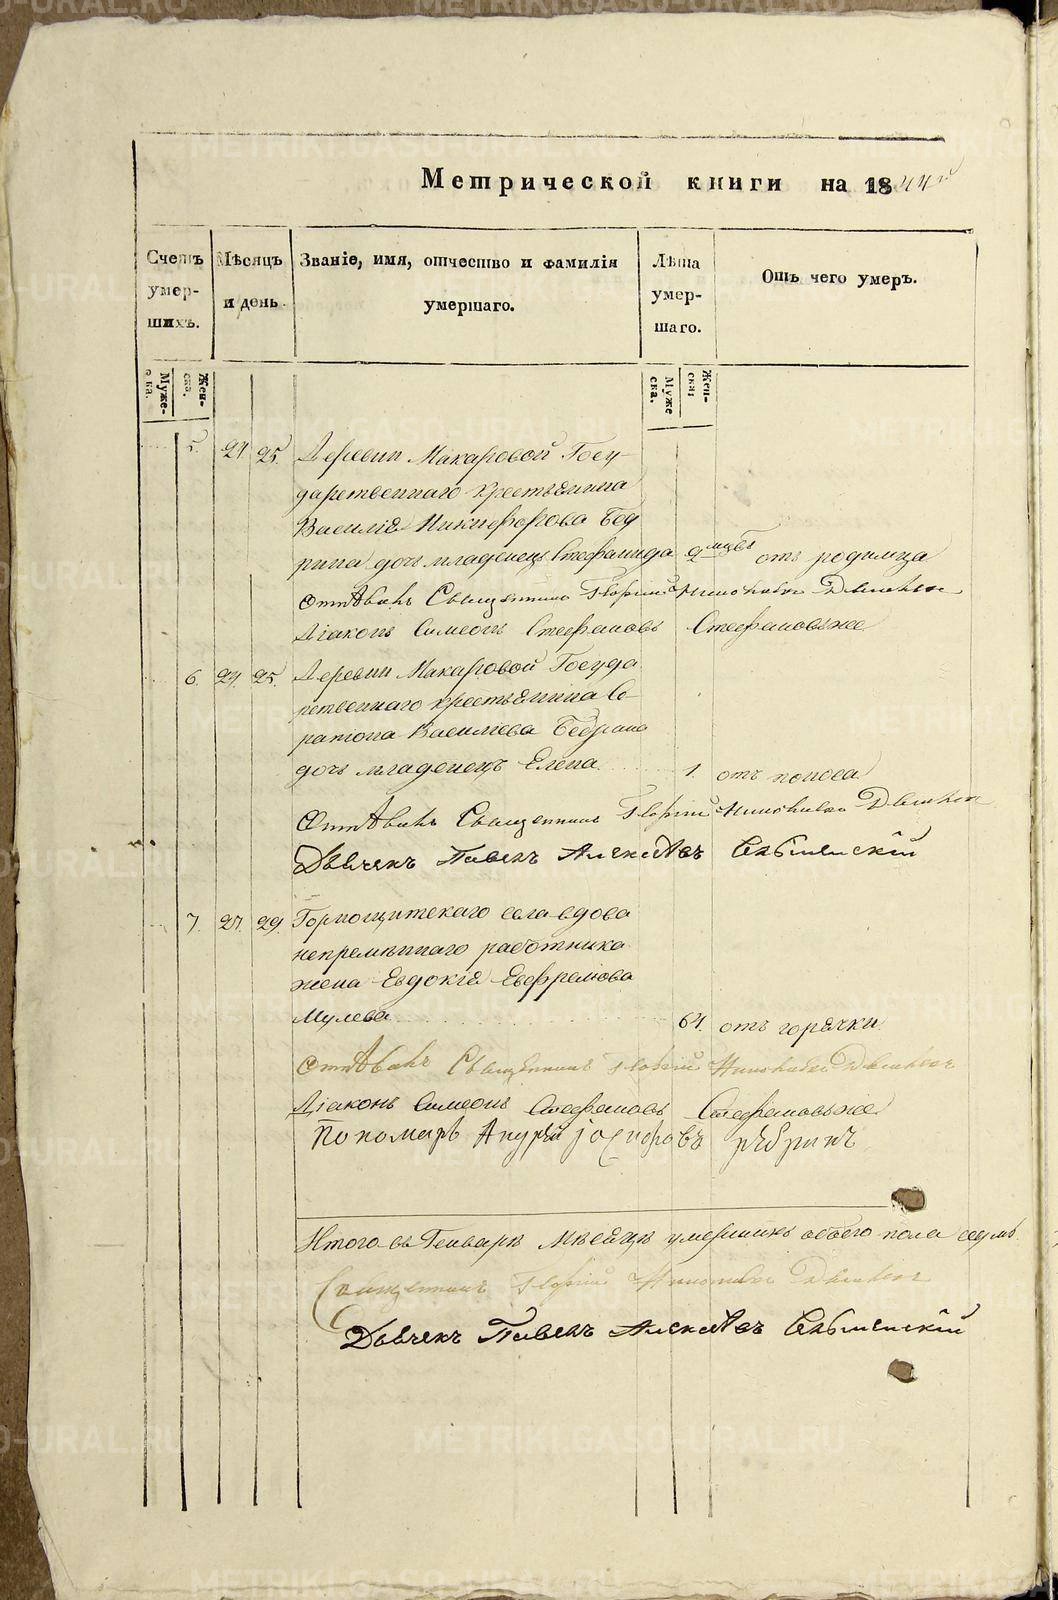 Метрической книги на 1844й
Счетъ умер- шихъ.
Мѣсяцъ и день.
Званіе, имя, отчество и фамилія умершаго.
Лѣта умер- шаго.
Отъ чего умеръ.
Муже- ска.
Жен- ска.
Муже ска.
Жен- ска
5. 24 25. Деревни Макаровой Госу-
дарственнаго крестьянина
Василія Никифорова Бед
рина дочь младенецъ Стефанида 2 мцвъ отъ родимца
Отпѣвалъ Священникъ Георгій
Діаконъ Симеонъ Стефановъ Стефановъ же
6. 24. 25. Деревни Макаровой Госуда
рственнаго крестьянина
Василіева Бедрина
дочь младенецъ Елена 1. отъ поноса
Отпѣвалъ Священникъ Георгій
Дьячекъ Павелъ Алексѣевъ
7. 27. 29. Горнощитскаго села вдова
непремѣннаго работника
жена Евдокія Ефремова
Мулева 64. отъ горячки
Отпѣвалъ Священникъ Георгій
Діаконъ Симеонъ Стефановъ Стефановъ же
Пономарь Андрей
Итого въ Генварѣ Мѣсяцѣ умершихъ обоего пола седмь
Священникъ Георгій
Дьячекъ Павелъ Алексѣевъ
METRIKI.GASO-URAL.RU